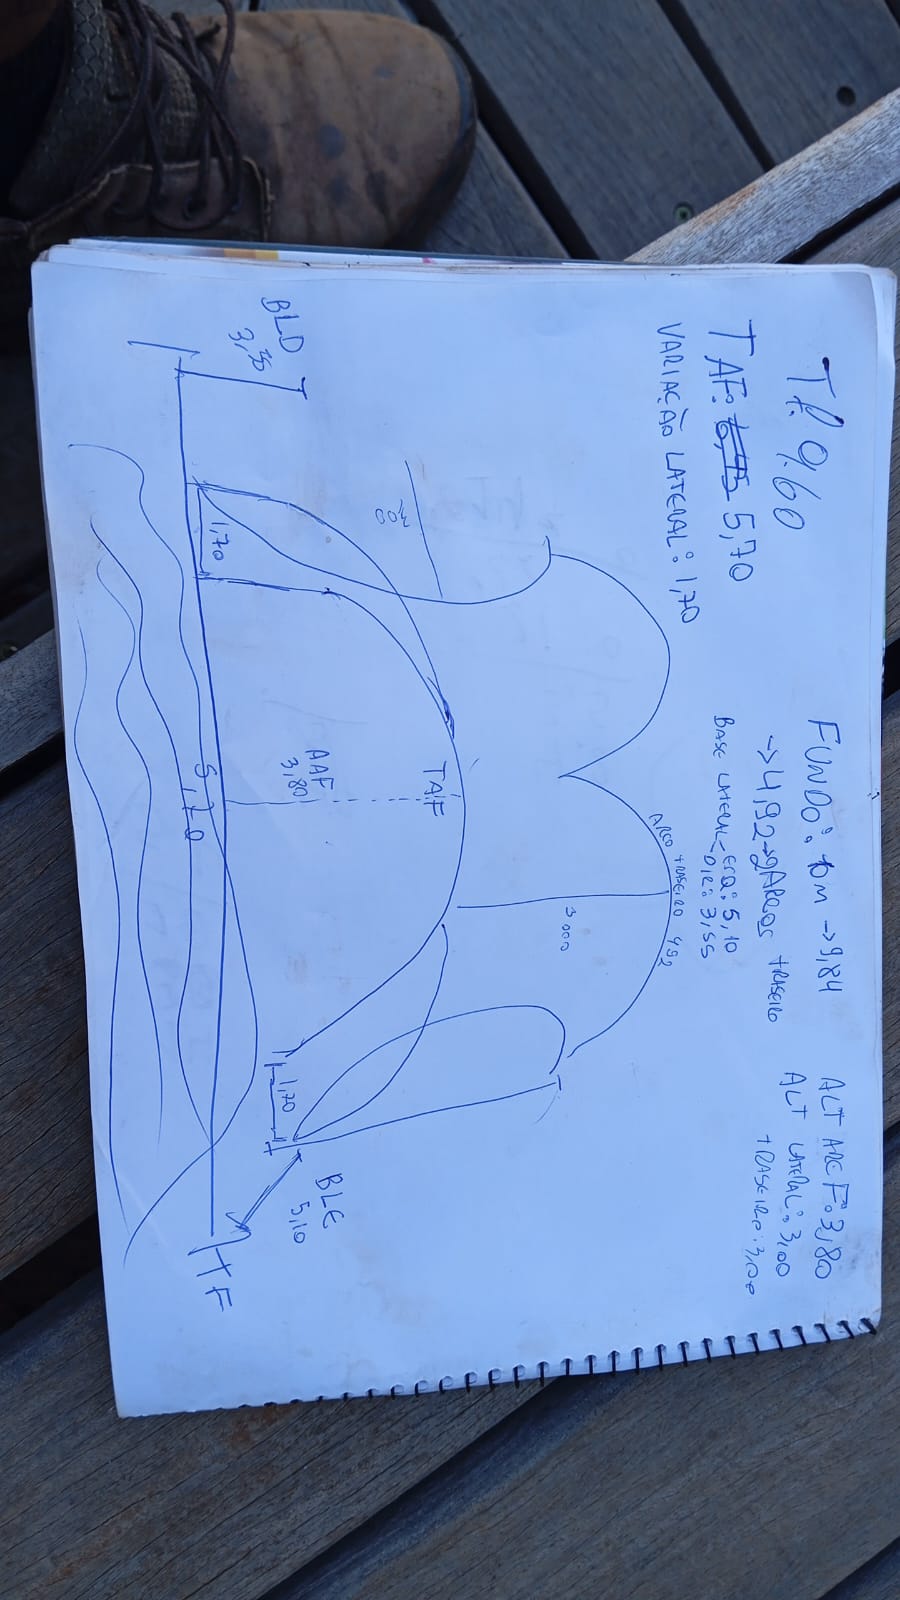 Tf. 9.60
TAF: 6,45 5,70
VARIAÇÃO LATERAL: 1,70
FUNDO: 10 M -> 9,84
-> 4,92 -> 2 ARCOS TRASEIRO
BASE LATERAL ESQ: 5,10
DIR: 3,55
ALT ARC F: 3,80
ALT LATERAL: 3,00
TRASEIRO: 3,00
ARCO TRASEIRO 492
3000
TAF
3,00
AAF
3,80
BLD
3,55
BLE
5,10
1,70
1,70
5,70
TF